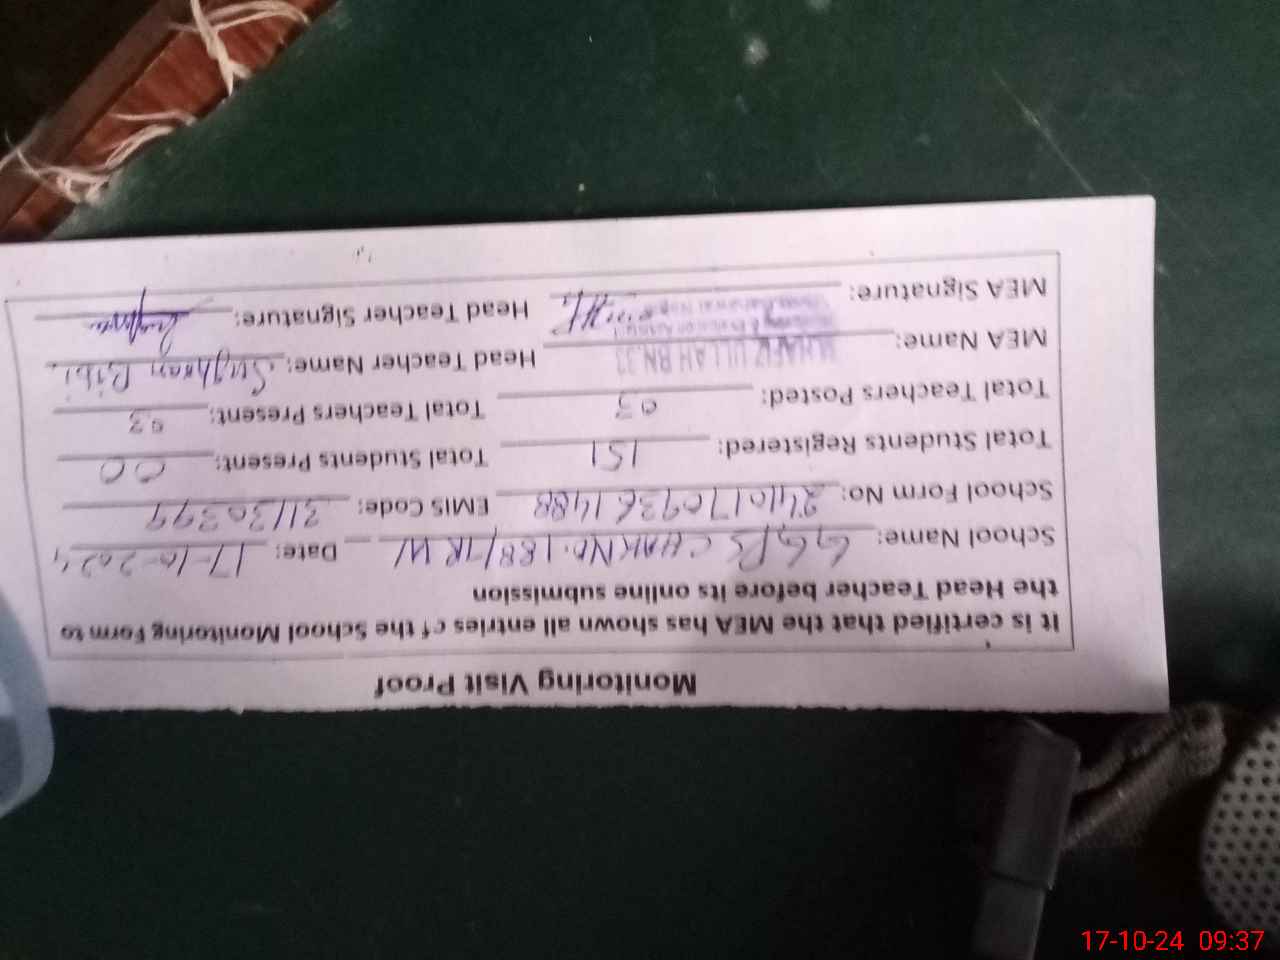 Monitoring Visit Proof
It is certified that the MEA has shown all entries of the School Monitoring Form to
the Head Teacher before its online submission
School Name: GGPS CHAK NO. 188/7R W Date: 17-10-2024
School Form No: EMIS Code: 31130399
Total Students Registered: 151 Total Students Present: 00
Total Teachers Posted: 03 Total Teachers Present: 03
MEA Name: M.HAFIZ ULLAH BN.33 Head Teacher Name: Sughran Bibi
MEA Signature: Head Teacher Signature:
17-10-24 09:37